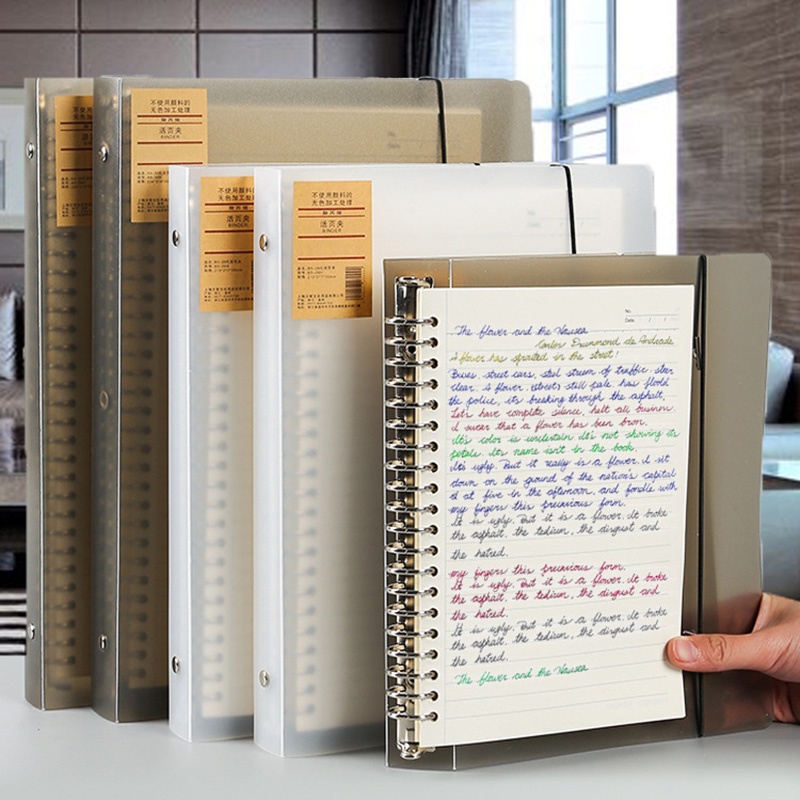 不使用颜料的
无色加工处理
活页夹
BINDER
不使用颜料的
无色加工处理
活页夹
BINDER
不使用颜料的
无色加工处理
活页夹
BINDER
No.
Date. / /
The flower and the Nausea
Carlos Drummond de Andrade
A flower has sprouted in the street!
Buses, street cars, steel stream of traffic steer
clear. A flower, still pale, has
the police, it's breaking through the asphalt.
Let's have complete silence, halt all business.
I swear that a flower has been bron.
It's color is uncertain It's not showing its
petals. Its name isn't in the book.
It's ugly. But it really is a flower. I sit
down on the ground of the nation's capital
at five in the afternoon and fondle with
my fingers this precarious form.
It is ugly. But it is a flower. It broke
the asphalt, the tedium, the disgust and
the hatred.
my fingers this precarious form.
It is ugly. But it is a flower. It broke
the asphalt, the tedium, the disgust and
the hatred.
It is ugly. But it is a flower. It broke
the asphalt, the tedium, the disgust and
the hatred.
The flower and the Nausea